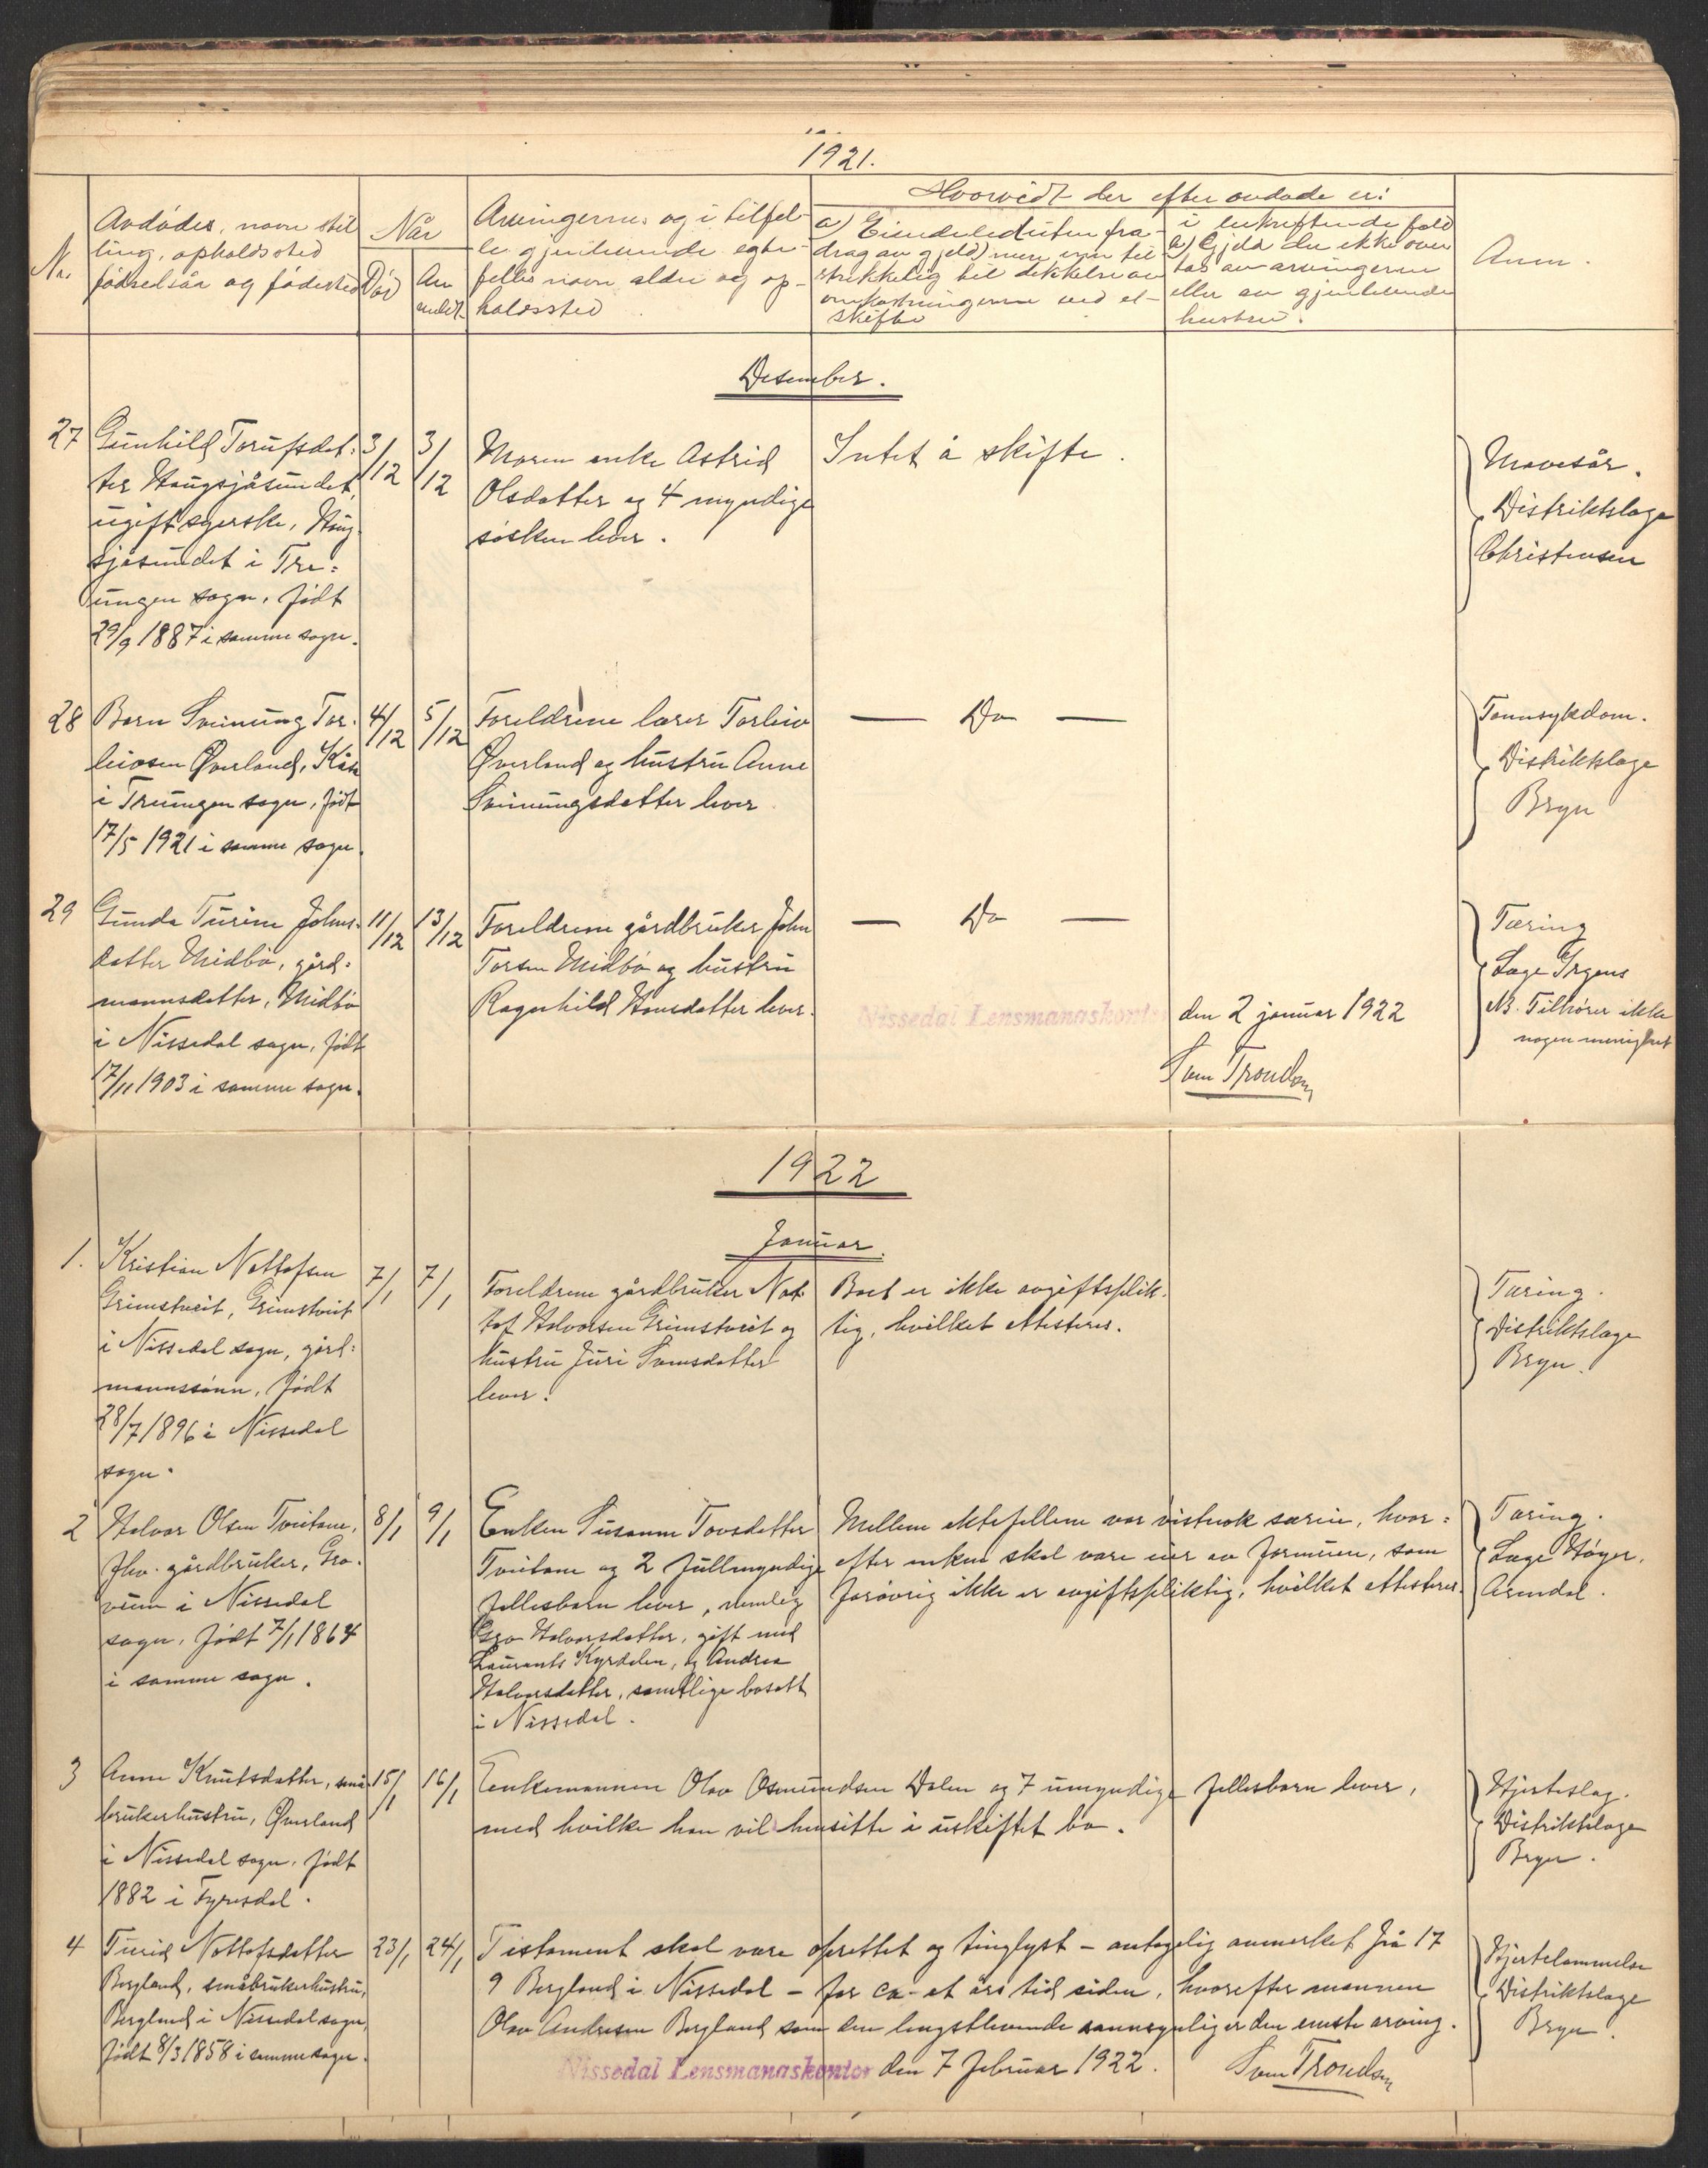 1921.
Nr.
Avdødes, navn stil
ling, opholdssted
fødselsår og fødested
Når
Død
An
meldt
Arvingernes og i tilfel-
le gjenlevende egte-
felles navn alder og op-
holdssted
Hvorvidt der efter avdøde er:
a) Eiendeledutenfra-
drag av gjeld) mere enn til
strekkelig til dekkelse av
omkostningerne ved et
skifte
i bekreftende fald
b) Gjeld der ikke over
tas av arvingerne
eller av gjenlevende
hustru.
Anm.
Desember.
27
Gunhild Torufsdat:
ter Haugsjåsundet,
ugift syerske, Haug
sjåsundet i Tre:
ungen sogn, født
29/9 1887 i samme sogn.
3/12
3/12
Moren enke Astrid
Olsdatter og 4 myndige
søsken lever.
Intet å skifte.
Mavesår.
Distriktslæge
Christensen
28
Barn Sveinung Tor-
leivsen Øverland, Kåsa
i Treungen sogn, født
17/5 1921 i samme sogn.
4/12
5/12
Foreldrene lærer Torleiv
Øverland og hustru Anne
Sveinungsdatter lever
— Do —
Tannsykdom.
Distriktslæge
Bryn
29
Gunda Turine Johns-
datter Midbø, gård:
mannsdatter, Midbø
i Nissedal sogn, født
17/11 1903 i samme sogn.
11/12
13/12
Foreldrene gårdbruker John
Torsen Midbø og hustru
Ragnhild Hansdatter lever.
— Do —
Tæring
Læge Irgens
NB. Tilhører ikke
nogen menighet
Nissedal Lensmannskontor
den 2 januar 1922
Sven Trondsen
1922
Januar.
1.
Kristian Nottofsen
Grimstveit, Grimstveit
i Nissedal sogn, gård:
mannssønn, født
28/7 1896 i Nissedal
sogn.
7/1
7/1
Foreldrene gårdbruker Not-
tof Halvorsen Grimstveit og
hustru Juri Svensdatter
lever.
Boet er ikke avgiftsplik-
tig, hvilket attesteres.
Tæring.
Distriktslæge
Bryn.
2
Halvor Olsen Tveitane,
fhv. gårdbruker, Gra-
vum i Nissedal
sogn, født 7/1 1864
i samme sogn.
8/1
9/1
Enken Susanne Tovsdatter
Tveitane og 2 fullmyndige
fellesbarn lever, nemlig
Gro Halvorsdatter, gift med
Laurants Kyrdalen, og Andrea
Halvorsdatter, samtlige bosatt
i Nissedal.
Mellem ektefellene var vistnok særeie, hvor:
efter enken skal være eier av formuen, som
forøvrig ikke er avgiftspliktig, hvilket attesteres.
Tæring.
Læge Høyer,
Arendal.
3
Anne Knutsdatter, små
brukerhustru, Øverland
i Nissedal sogn, født
1882 i Fyresdal.
15/1
16/1
Enkemannen Olav Osmundsen Dalen og 7 umyndige fellesbarn lever,
med hvilke han vil hensitte i uskiftet bo.
Hjerteslag.
Distriktslæge
Bryn.
4
Turid Nottofsdatter
Bergland, småbrukerhustru,
Bergland i Nissedal sogn,
født 8/3 1858 i samme sogn.
23/1
24/1
Testament skal være oprettet og tinglyst – antagelig anmerket på 17
9 Bergland i Nissedal – for ca. et års tid siden, hvorefter mannen
Olav Andresen Bergland som den lengstlevende sannsynlig er den eneste arving.
Hjertelammelse
Distriktslæge
Bryn.
Nissedal Lensmannskontor den 7 februar 1922.
Sven Trondsen